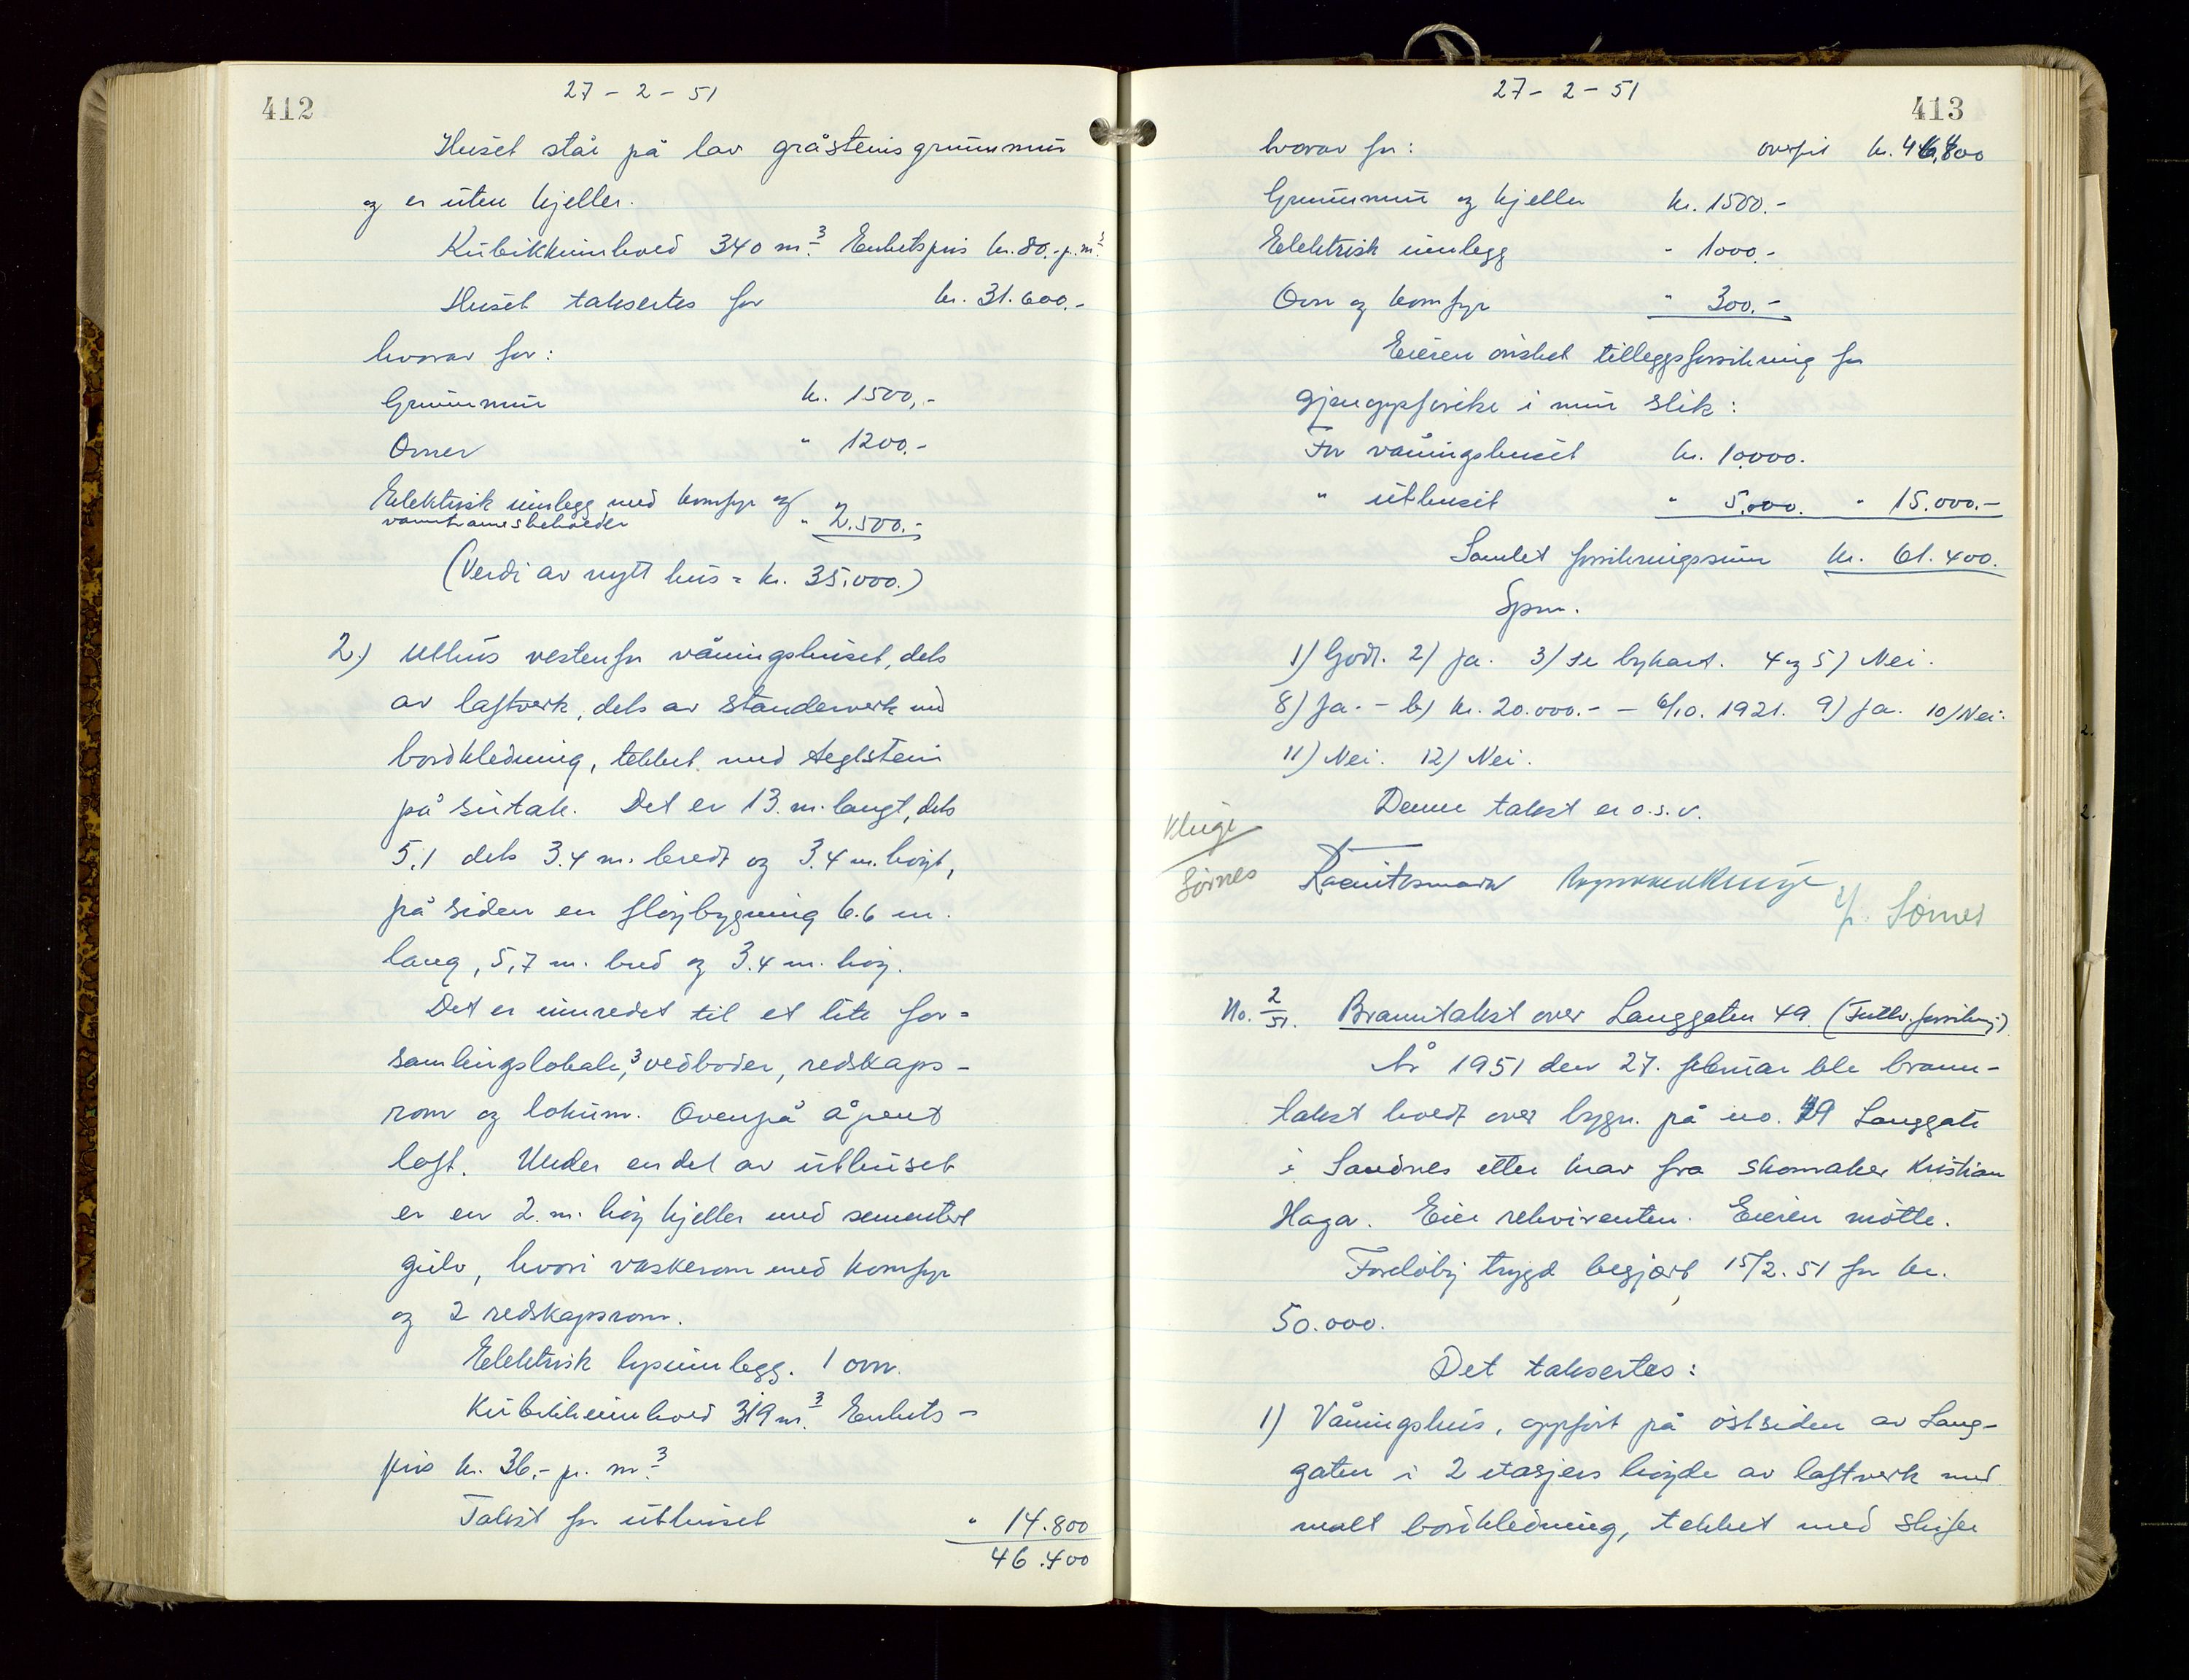 412
27 - 2 - 51
Huset står på lav gråsteinsgrunnmur
og er uten kjeller.
Kubikkinnhold 340 m³. Enhetspris kr. 80.- p. m³.
Huset taksertes for kr. 31.600.-
hvorav for:
Grunnmur kr. 1500,-
Ovner " 1200.-
Elektrisk innlegg med komfyr og
varmtvannsbeholder " 2.500.-
(Verdi av nytt hus = kr. 35.000.)
2.) Uthus vestenfor våningshuset, dels
av laftverk, dels av standerverk med
bordkledning, tekket med teglstein
på sutak. Det er 13. m. langt, dels
5,1 dels 3.4 m. bredt og 3.4 m. høyt,
på siden en fløybygning 6.6 m.
lang, 5,7 m. bred og 3.4 m. høy.
Det er innredet til et lite for=
samlingslokale, 3 vedboder, redskaps-
rom og lokum. Ovenpå åpent
loft. Under en del av uthuset
er en 2. m. høy kjeller med sementert
gulv, hvori vaskerom med komfyr
og 2 redskapsrom.
Elektrisk lysinnlegg. 1 ovn.
Kubikkinnhold 319 m³. Enhets-
pris kr. 36,- p. m³.
Takst for uthuset " 14.800
46.400
413
27 - 2 - 51
hvorav for: overført kr. 46,400
Grunnmur og kjeller kr. 1500.-
Elektrisk innlegg " 1000.-
Ovn og komfyr " 300.-
Eieren ønsket tilleggsforsikring for
gjenoppførelse i mur slik:
For våningshuset kr. 10.000.
" uthuset " 5.000. " 15.000.-
Samlet forsikringssum kr. 61.400.
Spm.
1) Godt. 2) Ja. 3) Se bykart. 4 og 5) Nei.
8) Ja. - b) kr. 20.000.- - 6/10. 1921. 9) Ja. 10) Nei.
11) Nei. 12) Nei.
Denne takst er o.s.v.
Kluge
Sørnes
Sørnes
No. 2/51. Branntakst over Langgaten 49. (Fullv. forsikring)
År 1951 den 27. februar ble brann-
takst holdt over bygn. på no. 49 Langgate
i Sandnes etter krav fra skomaker Kristian
Haga. Eier rekvirenten. Eieren møtte.
Foreløbig trygd begjært 15/2. 51 for kr.
50.000.
Det taksertes:
1) Våningshus, oppført på østsiden av Lang-
gaten i 2 etasjers høyde av laftverk med
malt bordkledning, tekket med skifer